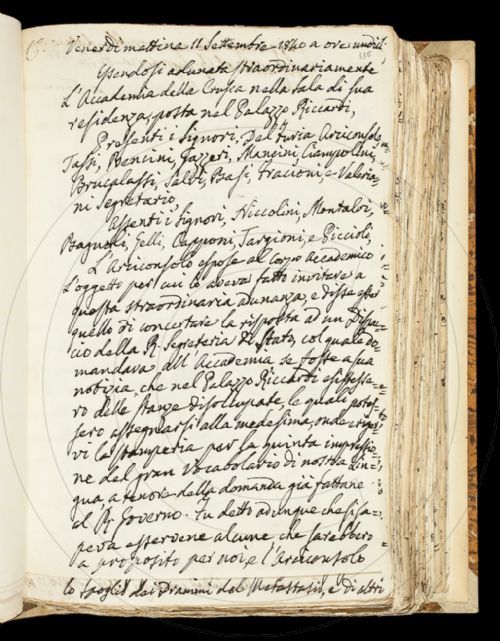 Venerdì mattina 11 Settembre 1840 a ore undici,
336
Essendosi adunata straordinariamente
L'Accademia della Crusca nella Sala di sua
residenza, posta nel Palazzo Riccardi,
Presenti i Signori, Del Furia Arciconsolo
Tassi, Bencini, Gazzeri, Mancini, Ciampolini,
Brucalassi, Salvi, Basi, Fraciani, e Valeria-
ni Segretario,
Assenti i Signori, Niccolini, Montalvi,
Bagnoli, Gelli, Capponi, Targioni, e Piccioli,
L'Arciconsolo espose al Corpo Accademico
l'oggetto per cui lo aveva fatto invitare a
questa straordinaria adunanza, e disse esser
quello di concertare la risposta ad un Dispac-
cio della R. Segreteria di Stato, col quale do-
mandava all'Accademia se fosse a sua
notizia che nel Palazzo Riccardi esistesse-
ro delle stanze disoccupate, le quali potes-
sero assegnarsi alla medesima, onde riporvi
vi la stamperia per la quinta impressio-
ne del gran Vocabolario di nostra Lin-
gua a tenore della domanda già fattane
al R. Governo. Fu detto adunque che si sa-
peva esservene alcune che sarebbero
a proposito per noi, e l'Arciconsolo
lo spoglio dei Drammi del Metastasio, e di altri